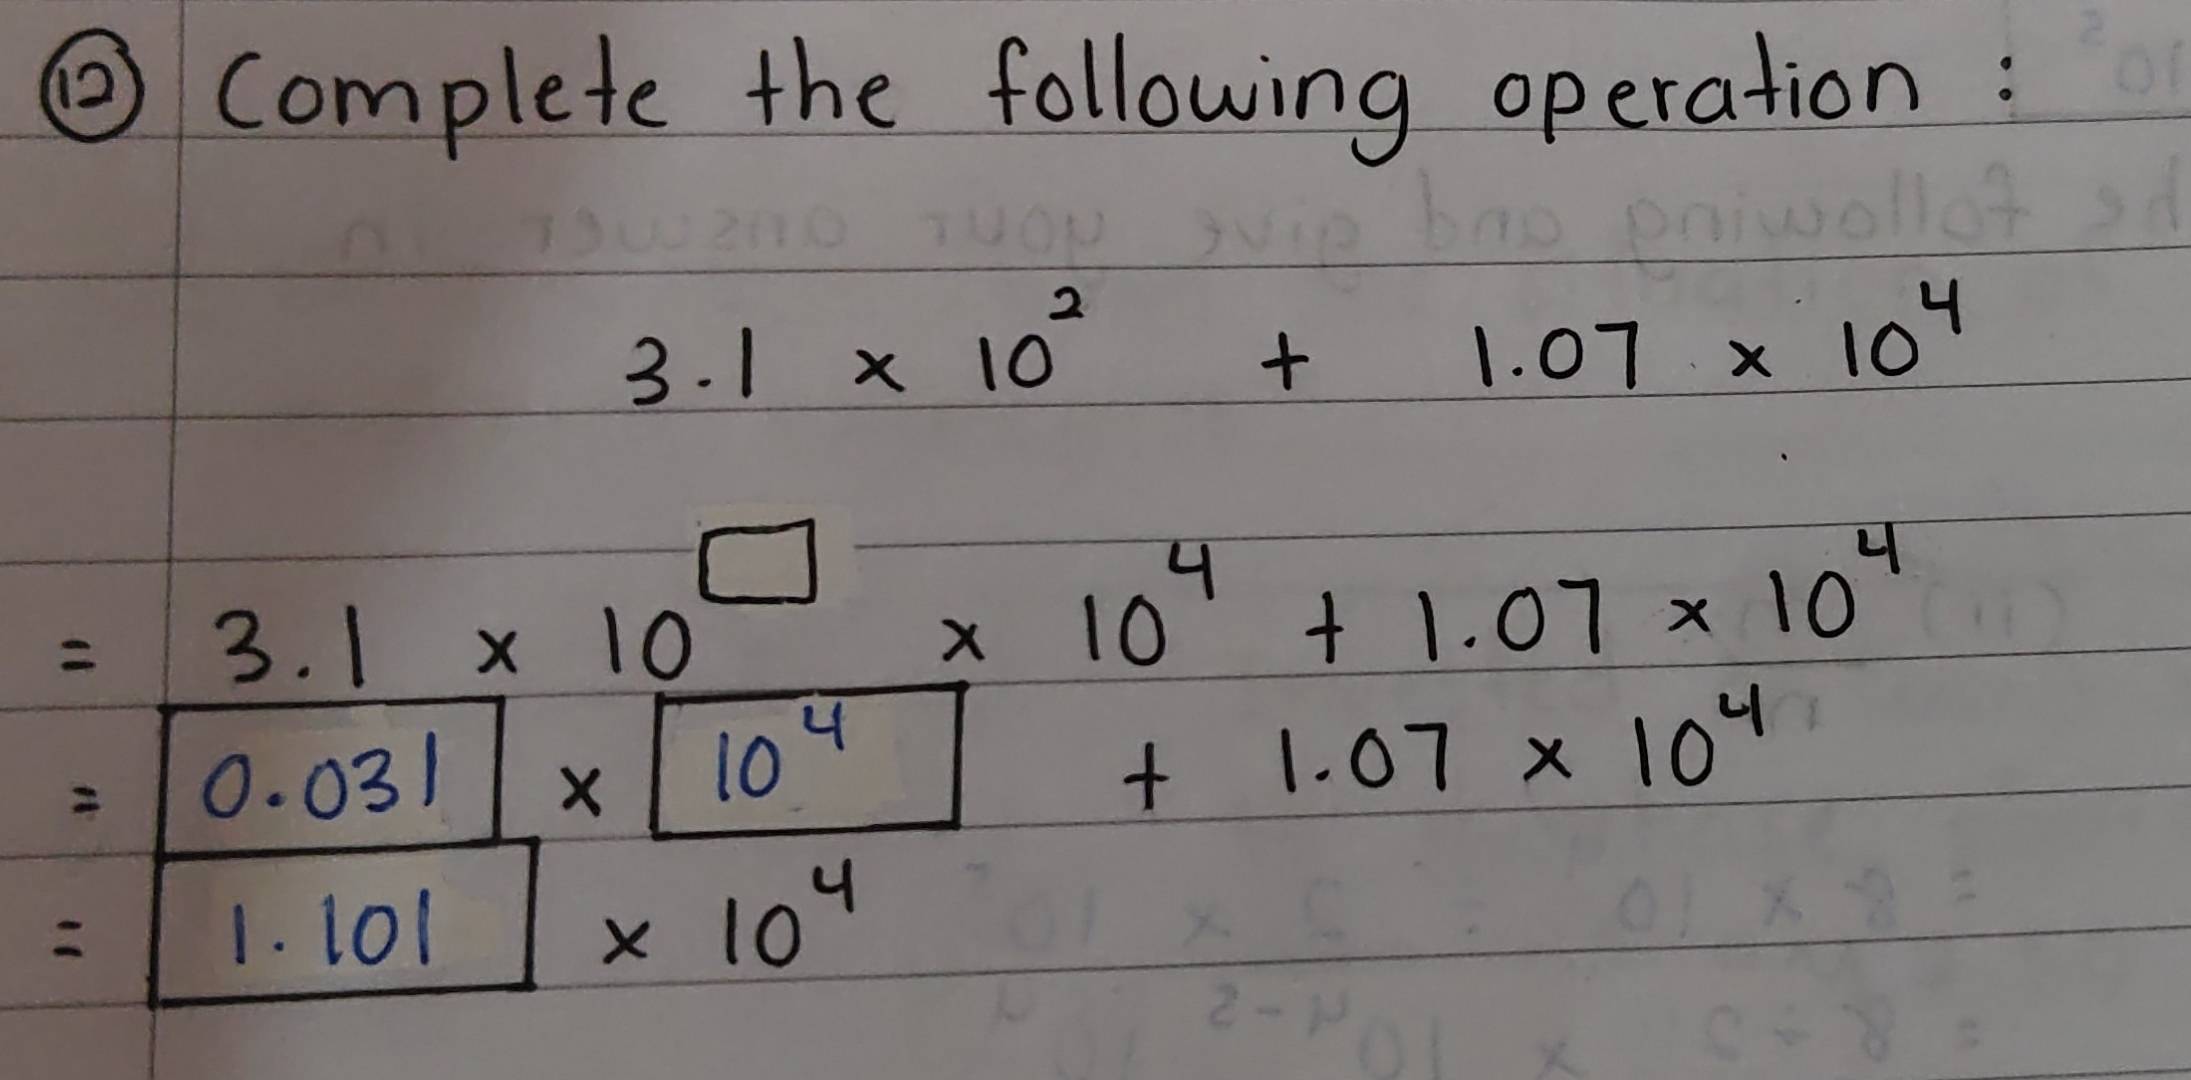 ⑫ Complete the following operation :
3.1 × 10² + 1.07 × 10⁴
= 3.1 × 10^□ × 10⁴ + 1.07 × 10⁴
= 0.031 × 10⁴ + 1.07 × 10⁴
= 1.101 × 10⁴